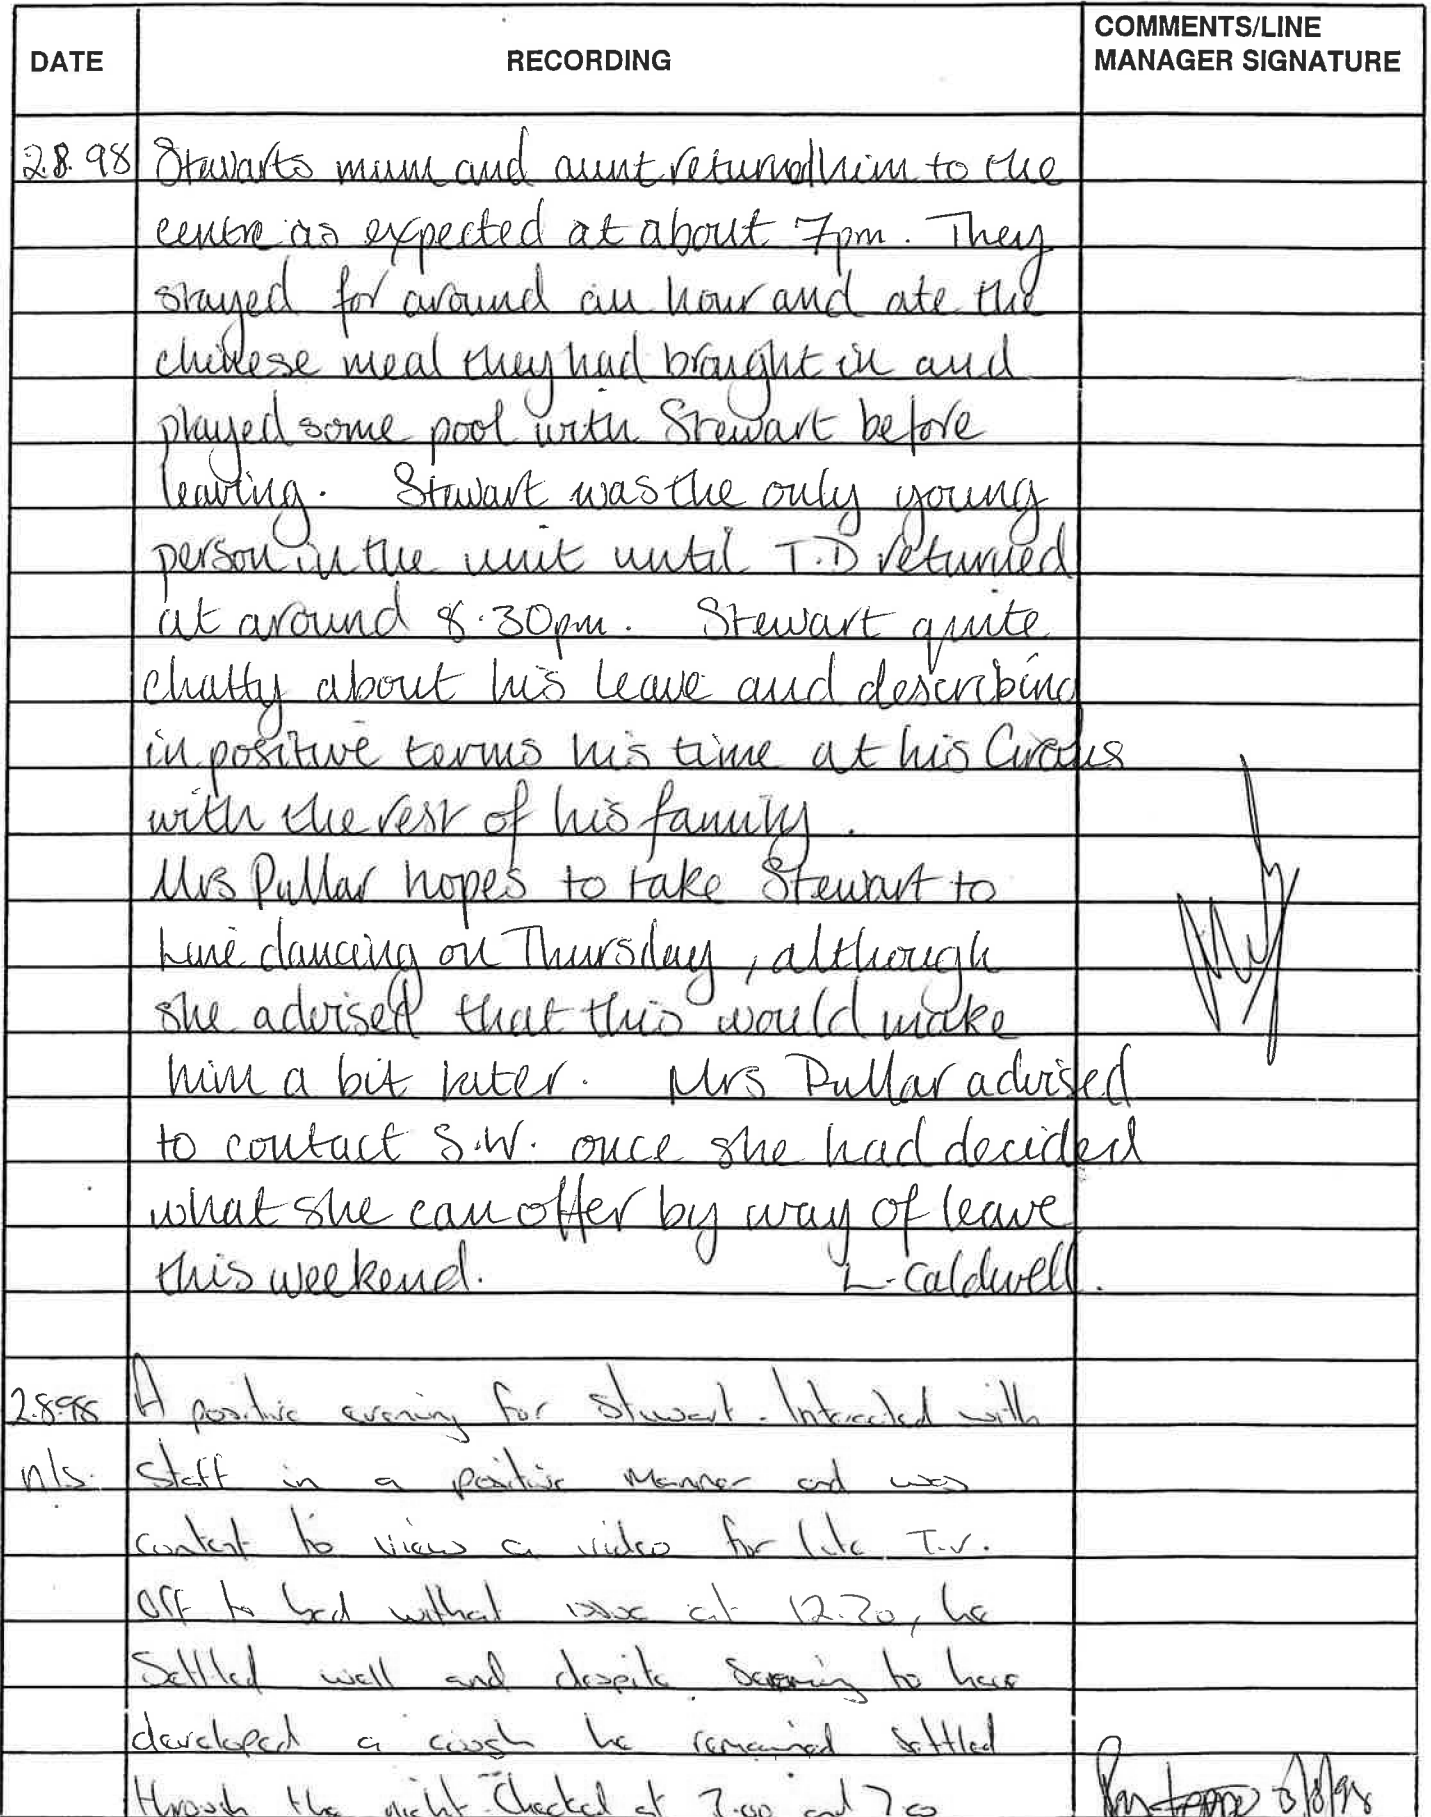 DATE RECORDING COMMENTS/LINE MANAGER SIGNATURE
2.8.98 Stewarts mum and aunt returned him to the
centre as expected at about 7pm. They
stayed for around an hour and ate the
chinese meal they had brought in and
played some pool with Stewart before
leaving. Stewart was the only young
person in the unit until T.D returned
at around 8.30pm. Stewart quite
chatty about his leave and describing
in positive terms his time at his
with the rest of his family.
Mrs Pullar hopes to take Stewart to
Line dancing on Thursday, although
she advised that this would make
him a bit later. Mrs Pullar advised
to contact S.W. once she had decided
what she can offer by way of leave
this weekend. L. Caldwell.
2.8.98 A positive evening for Stewart. Interacted with
n/s. Staff in a positive manner and was
content to view a video for late T.V.
Off to bed without issue at 12.30, he
Settled well and despite seeming to have
developed a cough he remained settled
through the night. Checked at and